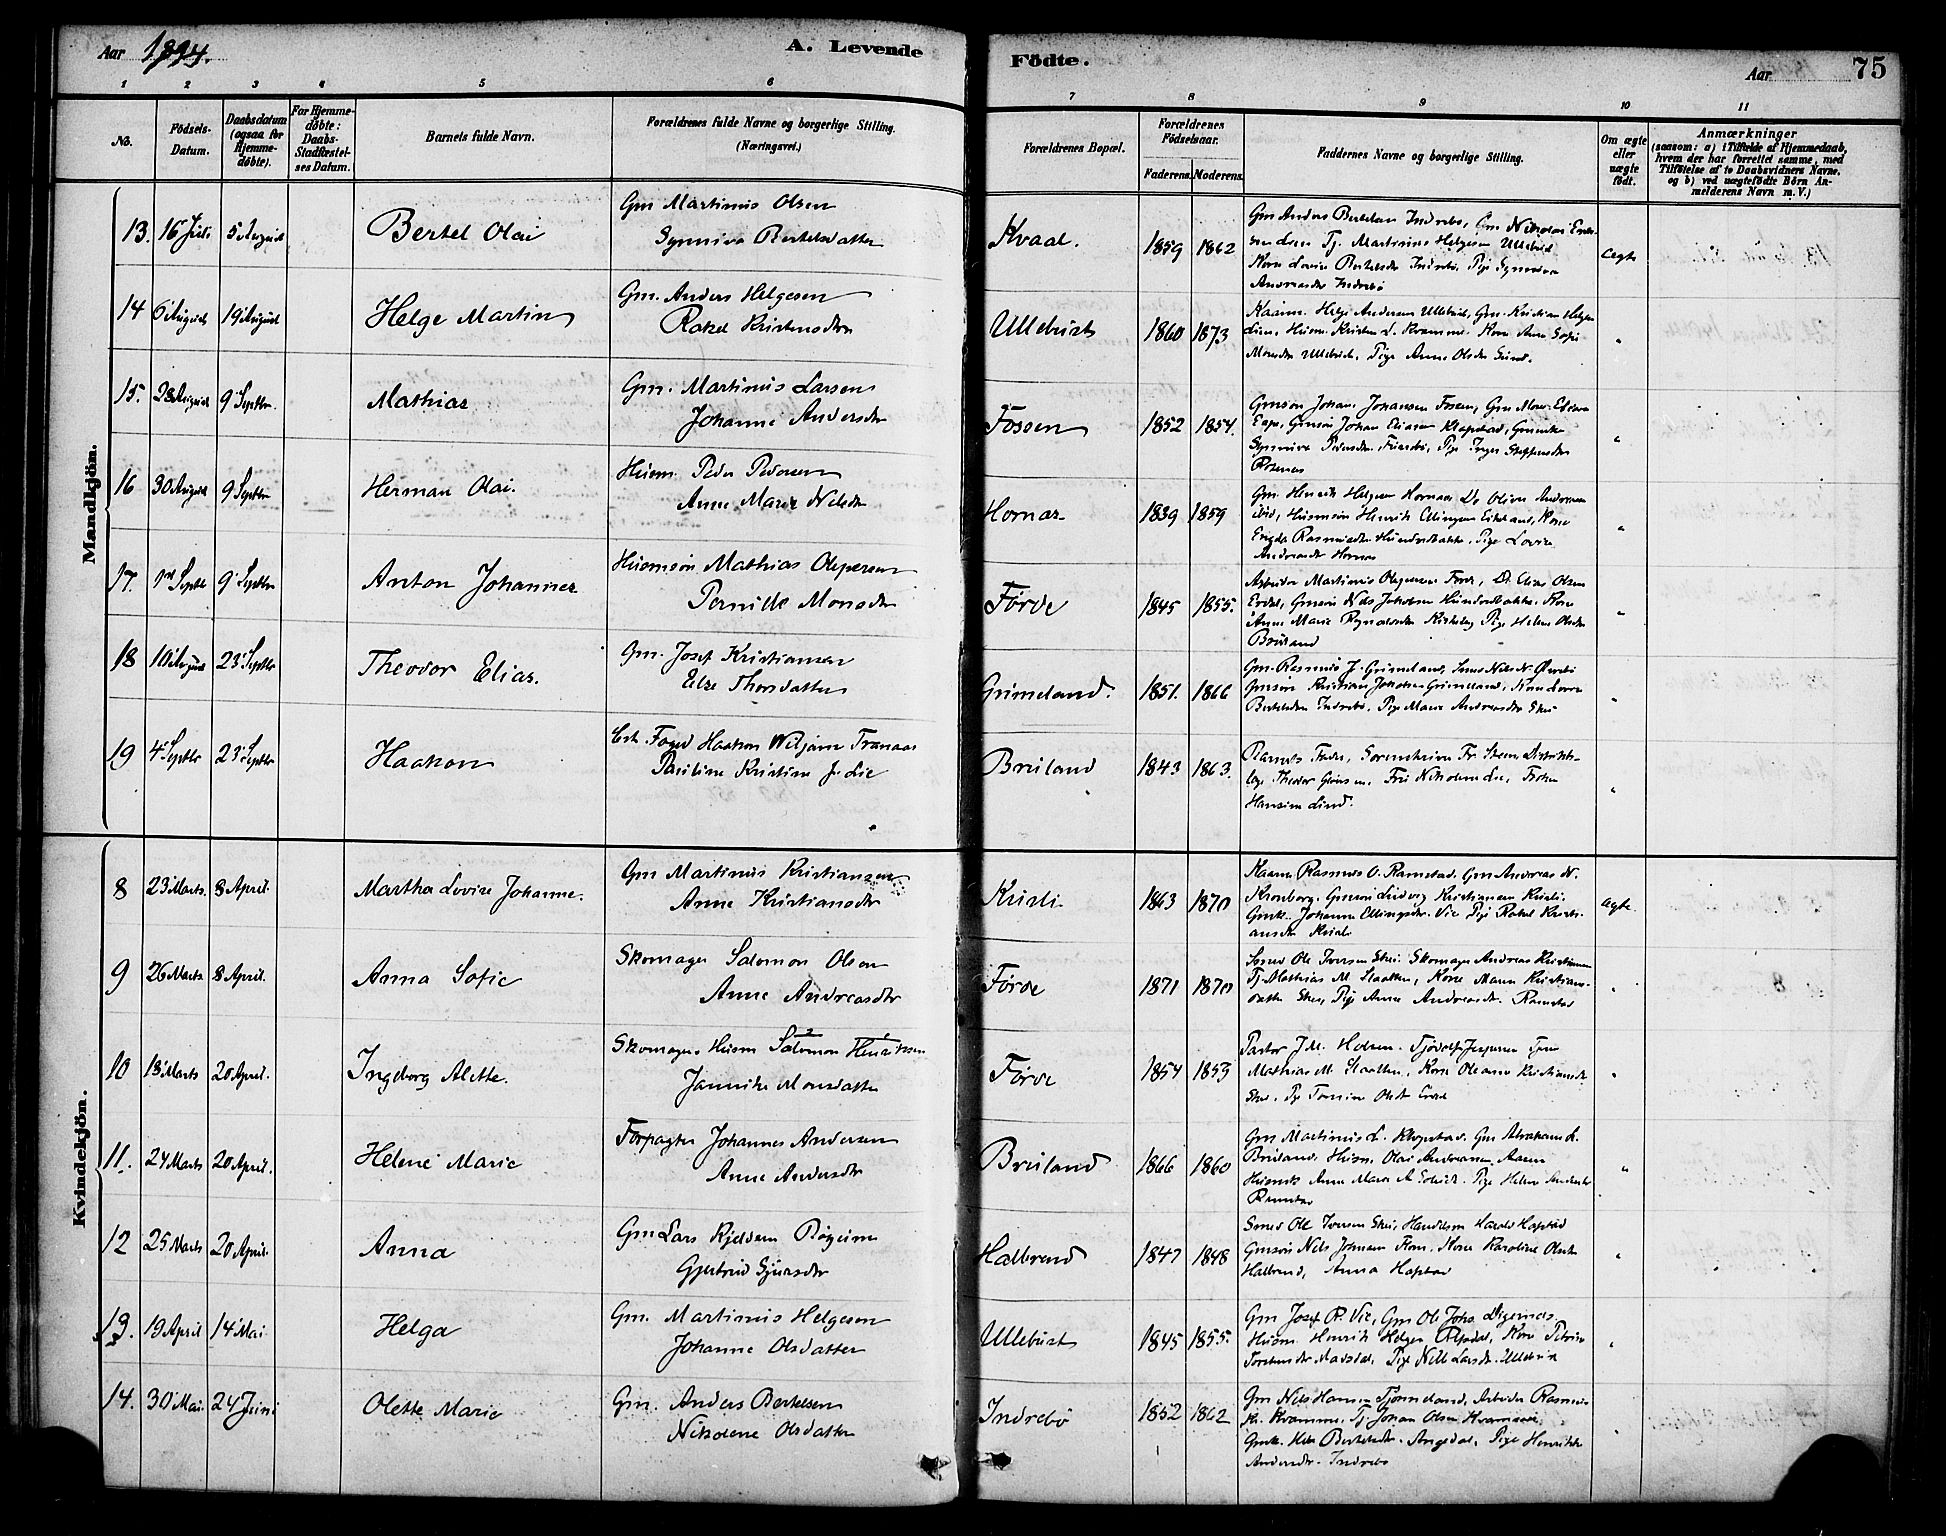 Aar 1894.
A. Levende
Födte.
Aar
75
1 2 3 4 5 6 7 8 9 10 11
No.
Födsels-Datum.
Daabsdatum (ogsaa for Hjemmedöbte).
For Hjemmedöbte: Daabs-Stadfæstelses Datum.
Barnets fulde Navn.
Forældrenes fulde Navne og borgerlige Stilling.
(Næringsvei.)
Forældrenes Bopæl.
Forældrenes Födselsaar.
Faderens. Moderens.
Faddernes Navne og borgerlige Stilling.
Om ægte eller uægte födt.
Anmærkninger
(saasom: a) i Tilfælde af Hjemmedaab, hvem der har forrettet samme, med Tilföielse af to Daabsvidners Navne, og b) ved uægtefödte Börn Anmelderens Navn m. V.)
Mandkjön.
13. 16 Juli 5 August Bertel Olai
Gm Martinus Olsen
Synneva Bertelsdatter
Kvaal. 1859 1862
Gm Anders Bertelsen Indrebö, Gm Nikolai
Tj. Martinus Helgesen Ullebust
Kone Lovise Bertelsdtr Indrebö, Pige Synneva
Andersdtr Indrebö
ægte
14 6 August 19 August Helge Martin
Gm. Anders Helgesen
Rakel Kristensdtr
Ullebust 1860 1873
Kaarm. Helge Andersen Ullebust, Gm. Kristian Helgesen
Lien, Husm. Kristen L. Kramme. Kone Anne Sofie
Monsdtr Ullebust, Pige Anne Olsdtr Sunde.
"
15. 28 August 9 Septbr. Mathias
Gm. Martinus Larsen
Johanne Andersdtr
Fossen 1852 1854.
Gmsön Johan Johansen Fossen, Gm Mons
Gmsön Johan Eliasen Klopstad,
Synneva Pedersdtr, Pige Inger Steffensdtr
"
16 30 August 9 Septbr Herman Olai.
Husm. Peder Pedersen
Anne Marie Nilsdtr
Hornes 1839 1859
Gm. Henrik Helgesen Hornes Do Oliver Andersen
ibid, Husmsön Henrik Ellingsen, Kone
Rasmusdtr Hundvebakke, Pige Lovise
Andersdtr Hornes
"
17. 1ste Septb 9 Septbr Anton Johannes
Husmsön Mathias Olepersen
Pernille Monsdtr
Förde 1845 1855.
Arbeider Martinus Förde, Do Elias Olsen
Erdal, Gmsön Nils Jakobsen Hundvebakke. Kone
Anne Marie, Pige Helene Olsdtr
Bruland
"
18 10 August 23 Septbr Theodor Elias.
Gm. Josef Kristiansen
Else Thorsdatter
Grimeland. 1851. 1866
Gm. Rasmus J. Grimeland, Nils N.
Gmsön Kristian Jakobsen Grimeland, Kone Lovise
Bertelsdtr Indrebö, Pige Marie Andreasdtr Skei
"
19 4 Septbr 23 Septbr Haakon
Fogd Haakon Wiljam Tranaas
Pauline Kristine f. Lie
Bruland 1843 1863.
Barnets Fader, Sorenskriver Fr. Steen, Distrikts-
læge Theodor, Fru Nikoline Lie, Fröken
Hansine Lind.
"
Kvindekjön.
8 23 Marts. 8 April. Martha Lovise Johanne.
Gm Martinus Kristiansen
Anne Kristiansdtr
Kusli 1863 1870
Kaarm Rasmus O. Ramstad. Gm Andreas N.
Kronborg, Gmsön Ludvig Kristiansen Kusli.
Gmk. Johanne Ellingsdtr. Vie Pige Rakel Kristi-
ansdtr Kusli
ægte
9 26 Marts 8 April. Anna Sofie
Skomager Salomon Olsen
Anne Andreasdtr
Förde 1871 1870
Smed Ole Iversen Skei. Skomager Andreas Kristiansen
Tj. Mathias M. Slaatten, Kone Maren Kristians-
datter Skei, Pige Anne Andreasdtr. Ramstad
"
10 18 Marts 20 April. Ingeborg Alette.
Skomager. Husm Salomon Henriksen
Jannike Monsdatter
Förde 1854 1853
Pastor J. M. Holsen.
Mathias M. Slaatten, Kone Oleanne Kristiansdtr
Skei. Pige Tomine Olsdtr Erdal
"
11. 24 Marts 20 April. Helene Marie
Forpagter Johannes Andersen
Anne Andersdtr
Bruland 1866 1860
Gm Martinus L. Klopstad. Gm Abraham L.
Bruland, Husm. Olai Andreassen Aasen
Anne Marie A, Pige Helene
Ramstad
"
12 25 Marts 20 April. Anna
Gm Lars Kjeldsen
Gjertrud Sjursdtr
Halbrend 1847 1848
Smed Ole Iversen Skei, Handelsm Harald Hapstad
Gmsön Nils Johnsen, Kone Karoline Olsdtr
Halbrend, Anna Hapstad
"
13. 19 April 14 Mai. Helga
Gm. Martinus Helgesen
Johanne Olsdatter
Ullebust 1845 1855.
Gm Josef R. Vie, Gm Ole Johs. Digernes,
Husm Henrik Helgesen, Kone Petrine
Torstensdtr, Pige Nille Larsdtr. Ullebust
"
14. 30 Mai. 24 Juni Olette Marie
Gm. Anders Bertelsen
Nikolene Olsdatter
Indrebö 1852 1862
Gm Nils Hansen, Arbeider Rasmus
Kr. Kramme. Tj. Johan Olsen Kramme,
Gmk. Bertelsdtr. Angedal, Pige Henrikke
Andersdtr. Indrebö
"